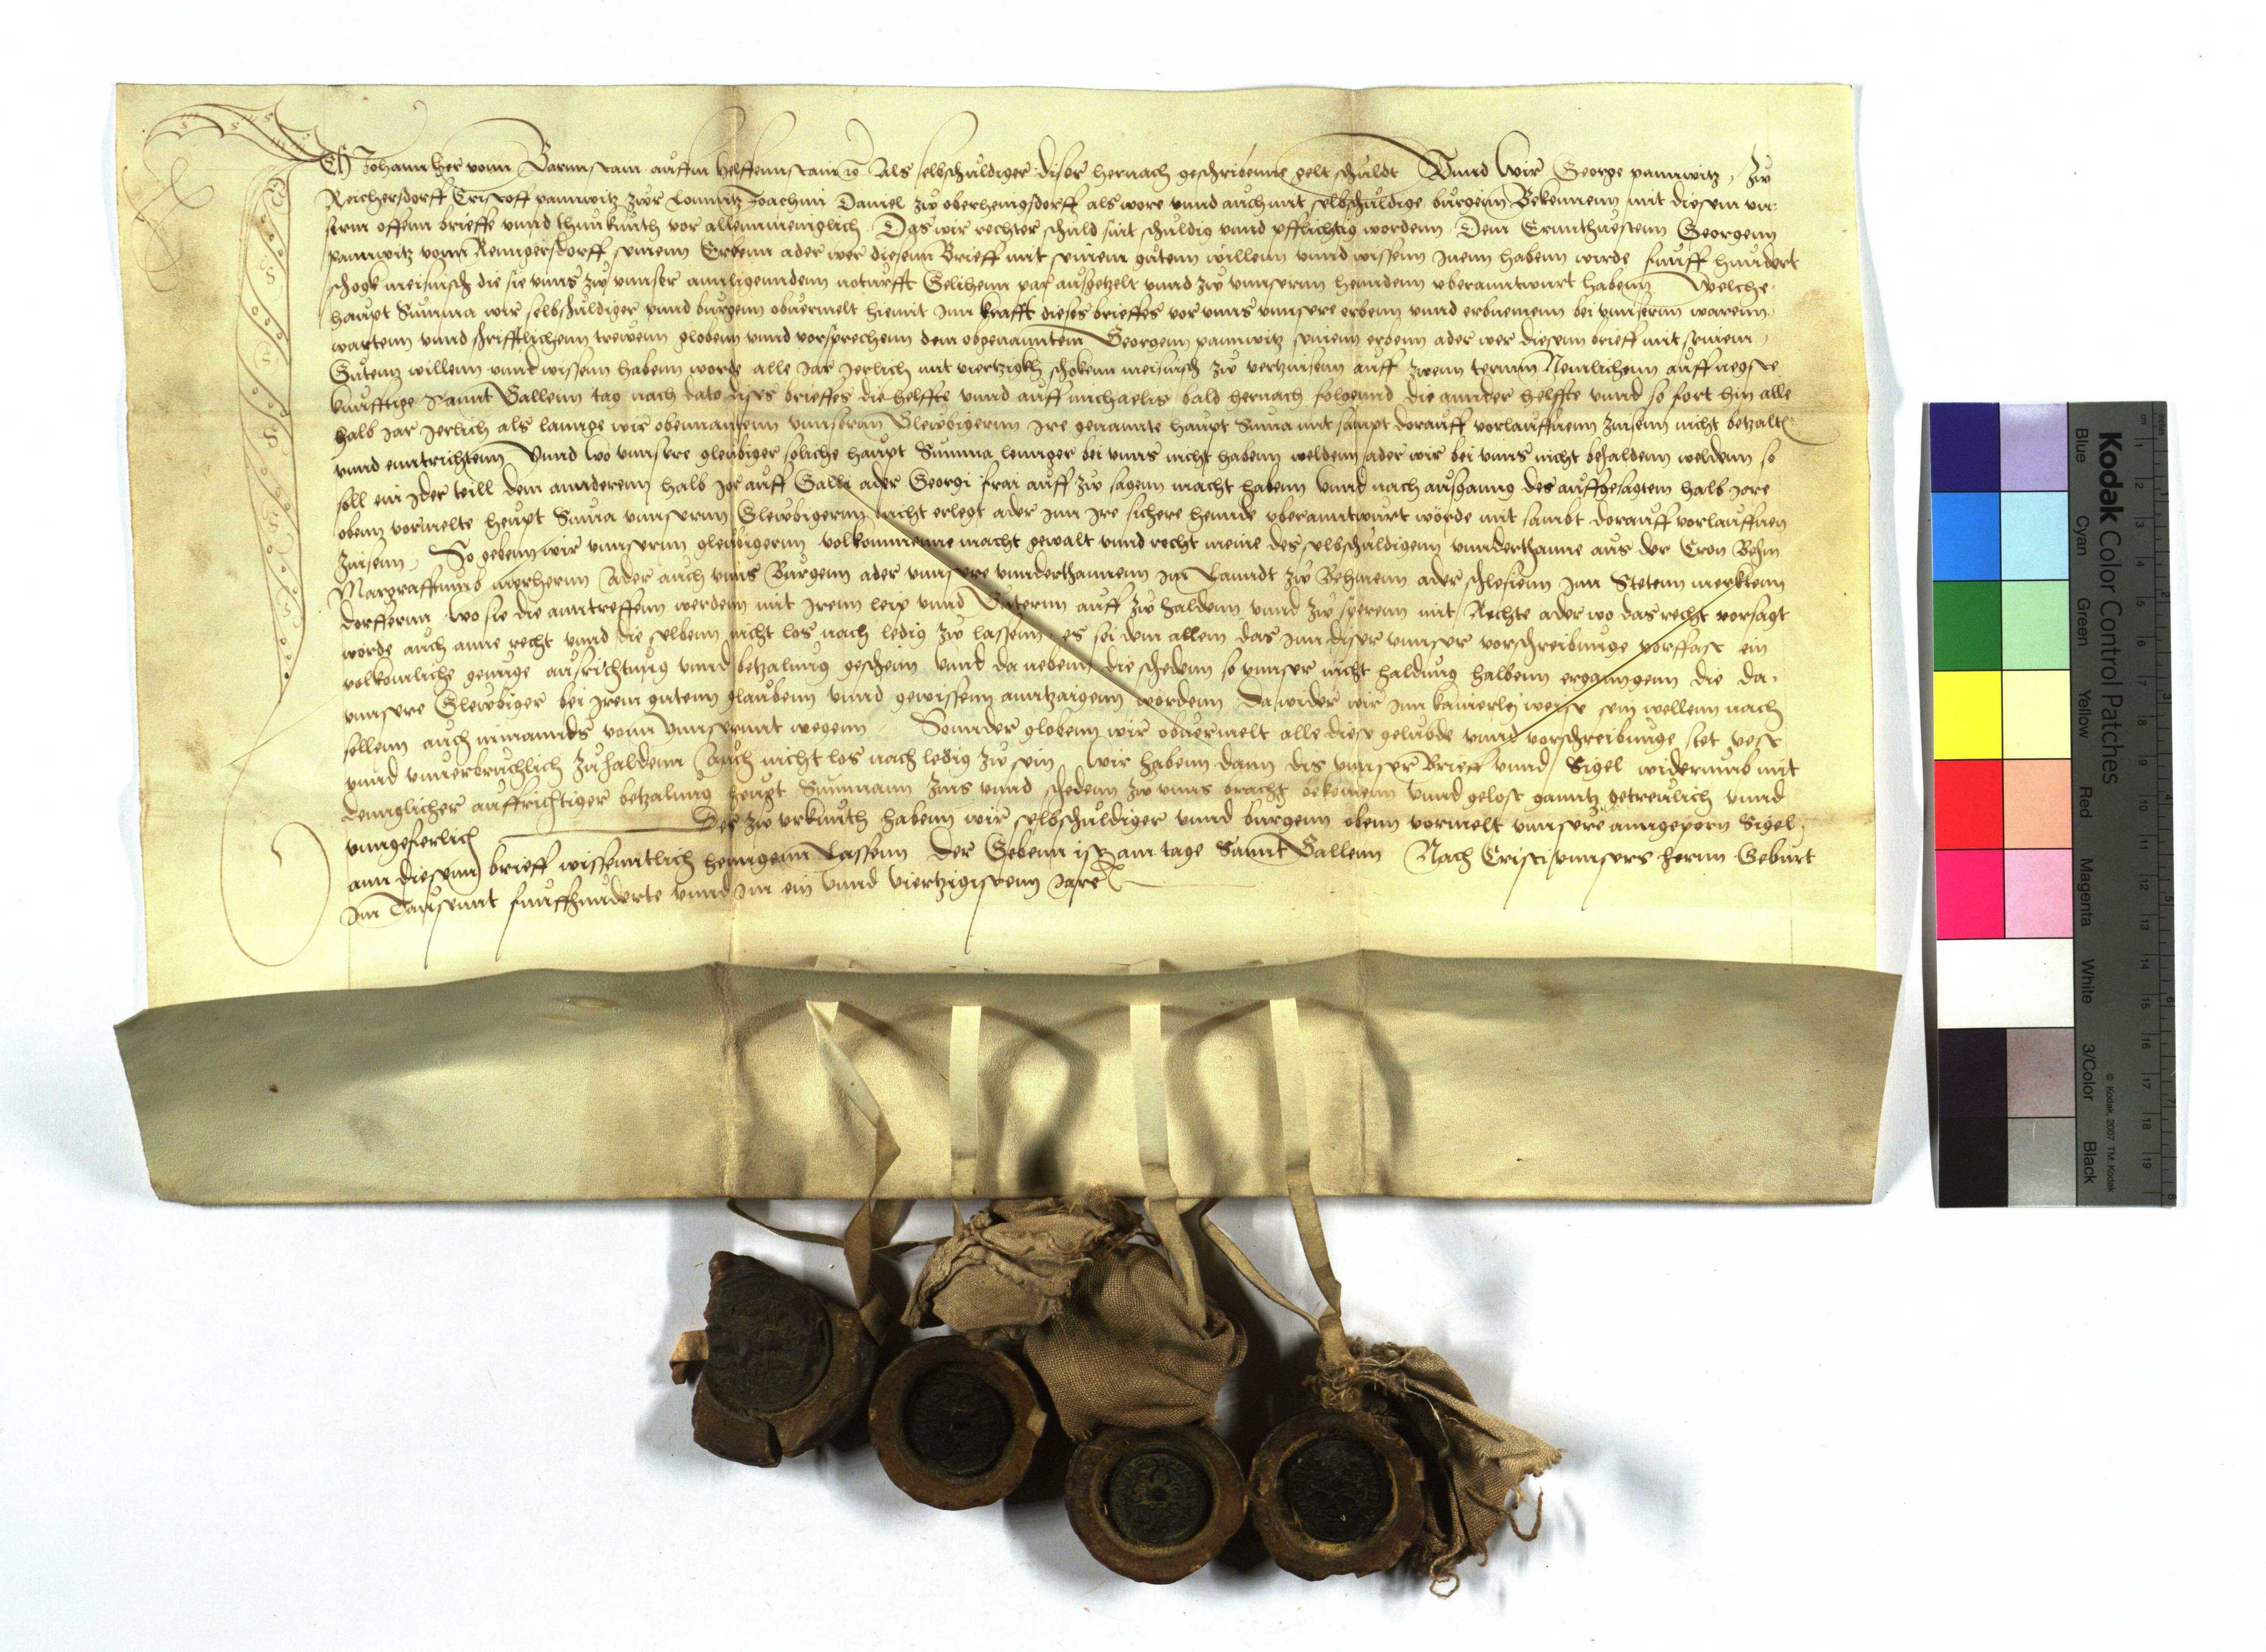 Ich Johann her vonn Barnnstain auffm Helffennstain ꝛc Als selbschuldiger diser hernach geschribenne gelt schuldt Vnnd Wir George pannwitz, zw
Reichersdorff Cristoff pannwitz zwr Lomnitz Joachim Daniel zw oberhenigsdorff als wore vnnd auch mit selbschuldige burgenn Bekennenn mit diesem vn-
serm offenn brieffe vnnd thun kunth vor allermeniglich Das wir rechter schuld sint schuldig vnnd pfflichtig wordenn Dem Ernnthuestenn Georgenn
pannwitz vonn Renngersdorff seinenn Erbenn ader wer diesenn Brieff mit seinem gutenn willenn vnnd wissenn Inenn habenn wirde funff hundert
schogk meisnisch die sie vnns zw vnnser annligenndenn noturfft Gelihenn par ausgetzelt vnnd zw vnnsernn henndenn vberanntwurt habenn Welche
haupt Summa wir selbschuldiger vnnd burgenn obuermelt hiemit Inn krafft dieses brieffes vor vnns vnnsere erbenn vnnd erbnemenn bei vnnsernn warenn
wortenn vnnd schrifftlichenn trewenn globenn vnnd vorsprechenn dem obgenanntenn Georgenn pannwitz seinenn erbenn ader wer diesenn brieff mit seinem
Gutenn willenn vnnd wissenn habenn worde alle Jar Jerlich mit viertzigkh schokenn meisnisch zw vertzinsenn auff zwenn termin Nemlichenn auff negste
kunfftige Sannt Gallenn tag nach dato dises brieffes die helffte vnnd auff michaelis bald hernach folgennd die annder helffte vnnd so fort hin alle
halb Jar Jerlich als lannge wir obennantenn vnnsernn Glewbigernn Ire genannte haupt Suma mit sampt dorauff vorlauffnenn zinsenn nicht betzaltt
vnnd enntrichtenn Vnnd wo vnnsere gleubiger soliche haupt Summa lennger bei vnns nicht habenn weldenn ader wir bei vnns nicht behaldenn weldenn so
soll ein Ider teill dem annderenn halb Jor auff Galli ader Georgi frai auff zw sagenn macht habenn Vnnd nach aussganng des auffgesagtem halb Jore
obenn vormelte heupt Suma vnnsernn Glewbigernn nicht erlegt ader Inn Ire sichere hennde vberanntwurt worde mit sambt dorauff vorlauffnen
zinsenn, So gebenn wir vnnsernn gleubigernn volkommenne macht gewalt vnnd recht meine des selbschuldigenn vnnderthanne aus der Cron Behm
Margraffthumb merhernn Ader auch vnns Burgenn ader vnnsere vnnderthannenn Im Lanndt zw Behmenn ader schlesienn Inn Stetenn merktenn
dorffernn wo sie die anntreffenn werdenn mit Irenn leip vnnd Guternn auff zw haldenn vnnd zw sperenn mit Rechte ader wo das recht vorsagt
worde auch anne recht vnnd die selbenn nicht los nach ledig zw lassenn, es sei dem allem das Inn diser vnnser vorschreibunge vorffast ein
volkomliche genuge ausrichtung vnnd betzalung gescheenn Vnnd da nebenn die schedenn so vnnser nicht haldung halbenn ergangenn die da,
vnnsere Glewbiger bei Irem gutenn glaubenn vnnd gewissenn anntzaigenn wordenn Da wider wir Inn kainerley weise sein wellenn nach
sollenn auch nimannds vonn vnnserntt wegenn Sonnder globenn wir obuermelt alle diese gelubde vnnd vorschreibunge stet vest
vnnd vnnuerbruchlich zuhaldenn Auch nicht los nach ledig zw sein, Wir habenn dann dis vnnser Brieff vnnd Sigel widerumb mit
denniglicher auffrichtiger betzalung heupt Summann zins vnnd schedenn zw vnns bracht bekomenn vnnd gelost ganntz getreulich vnnd
vnngeferlich Des zw vrkunth habenn wir selbschuldiger vnnd burgenn obenn vormelt vnnsere anngeporn Sigel,
ann diesenn brieff wissenntlich henngenn Lassenn Der Gebenn ist am tage Sannt Gallenn Nach Cristi vnnsers hernn Geburt
Im Tausennt funffhunderte vnnd Im ein vnnd viertzigistenn Jare
Kodak Color Control Patches
© Kodak, 2007 TM: Kodak
Blue Cyan Green Yellow Red Magenta White 3/Color Black